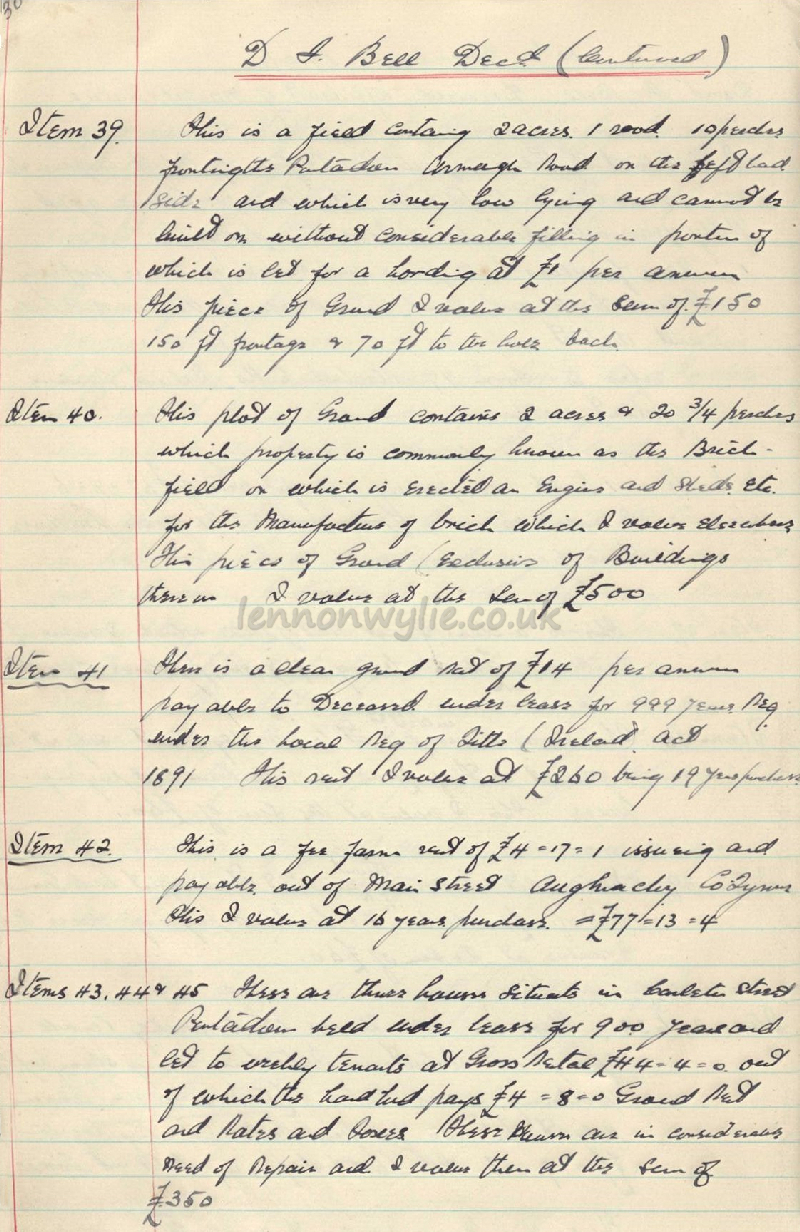 30
D I Bell Decd (Continued)
Item 39. This is a field containg 2 acres. 1 rood. 10 perches
frontingthe Portadown Armagh Road on the left had
side and which is very low lying and cannot be
built on without considerable filling in portion of
which is let for a hording at £1 per annum
This piece of Ground I value at the Sum of £150
150 ft frontage & 70 ft to the back
Item 40. This plot of Ground contains 2 acres & 20 3/4 perches
which property is commonly known as the Brick-
field on which is Erected an Engine and Sheds etc.
for the Manufacture of brick which I value elsewhere
This piece of Ground (Exclusive of Buildings
thereon I value at the Sum of £500
lennonwylie.co.uk
Item 41 This is a clear ground Rent of £14 per annum
payable to Deceased under lease for 999 years Reg
under the Local Reg of Title (Ireland) act
1891 This rent I value at £260 being 19 years purchase
Item 42. This is a fee farm rent of £4=17=1 issueing and
payable out of Main Street Aughnacloy Co. Tyrone
This I value at 16 years purchase. = £77=13=4
Items 43, 44 & 45 These are three houses Situate in Carleton Street
Portadown held under lease for 900 years and
let to weekly tenants at Gross Rental £44-4=0 out
of which the Landlord pays £4=8=0 Ground Rent
and Rates and Taxes These Houses are in considerable
need of Repair and I value them at the Sum of
£350